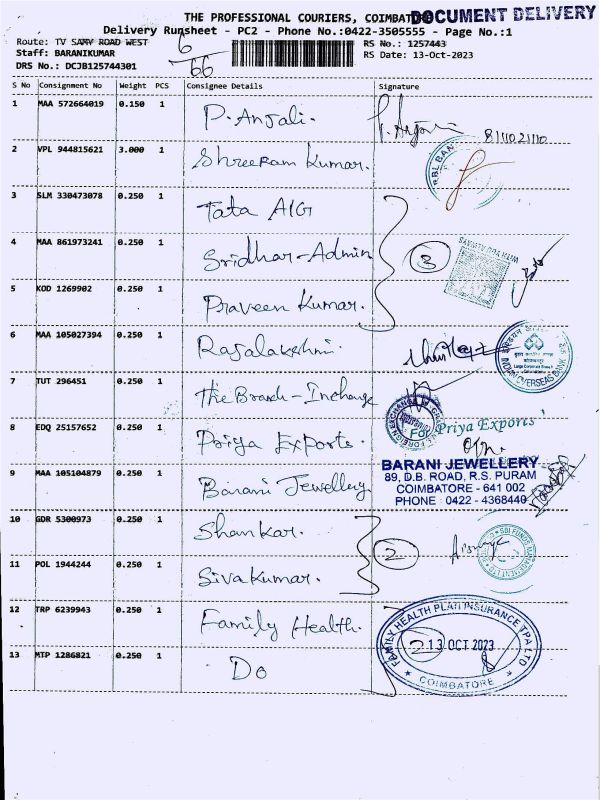 THE PROFESSIONAL COURIERS, COIMBATORE
DOCUMENT DELIVERY
Delivery Runsheet - PC2 - Phone No.:0422-3505555 - Page No.:1
Route: TV SAMY ROAD WEST
RS No.: 1257443
Staff: BARANIKUMAR
RS Date: 13-Oct-2023
DRS No.: DCJB125744301
6/66
S No Consignment No Weight PCS Consignee Details Signature
1 MAA 572664019 0.150 1 P. Anjali. P. Anjali
2 VPL 944815621 3.000 1 Shreeram Kumar.
RBL BAN
3 SLM 330473078 0.250 1 Tata AIG
4 MAA 861973241 0.250 1 Sridhar-Admin 3
5 KOD 1269902 0.250 1 Praveen Kumar.
6 MAA 105027394 0.250 1 Rajalakshmi.
INDIAN OVERSEAS BANK
7 TUT 296451 0.250 1 The Branch-Incharge
8 EDQ 25157652 0.250 1 Priya Exports.
For Priya Exports
9 MAA 105104879 0.250 1 Barani Jewellery
BARANI JEWELLERY
89, D.B. ROAD, R.S. PURAM
COIMBATORE - 641 002
PHONE : 0422 - 4368440
10 GDR 5300973 0.250 1 Shankar.
2
SBI FUNDS MANAGEMENT LTD
11 POL 1944244 0.250 1 Sivakumar.
12 TRP 6239943 0.250 1 Family Health.
FAMILY HEALTH PLAN INSURANCE TPA LTD
2 13 OCT 2023
COIMBATORE
13 MTP 1286821 0.250 1 Do